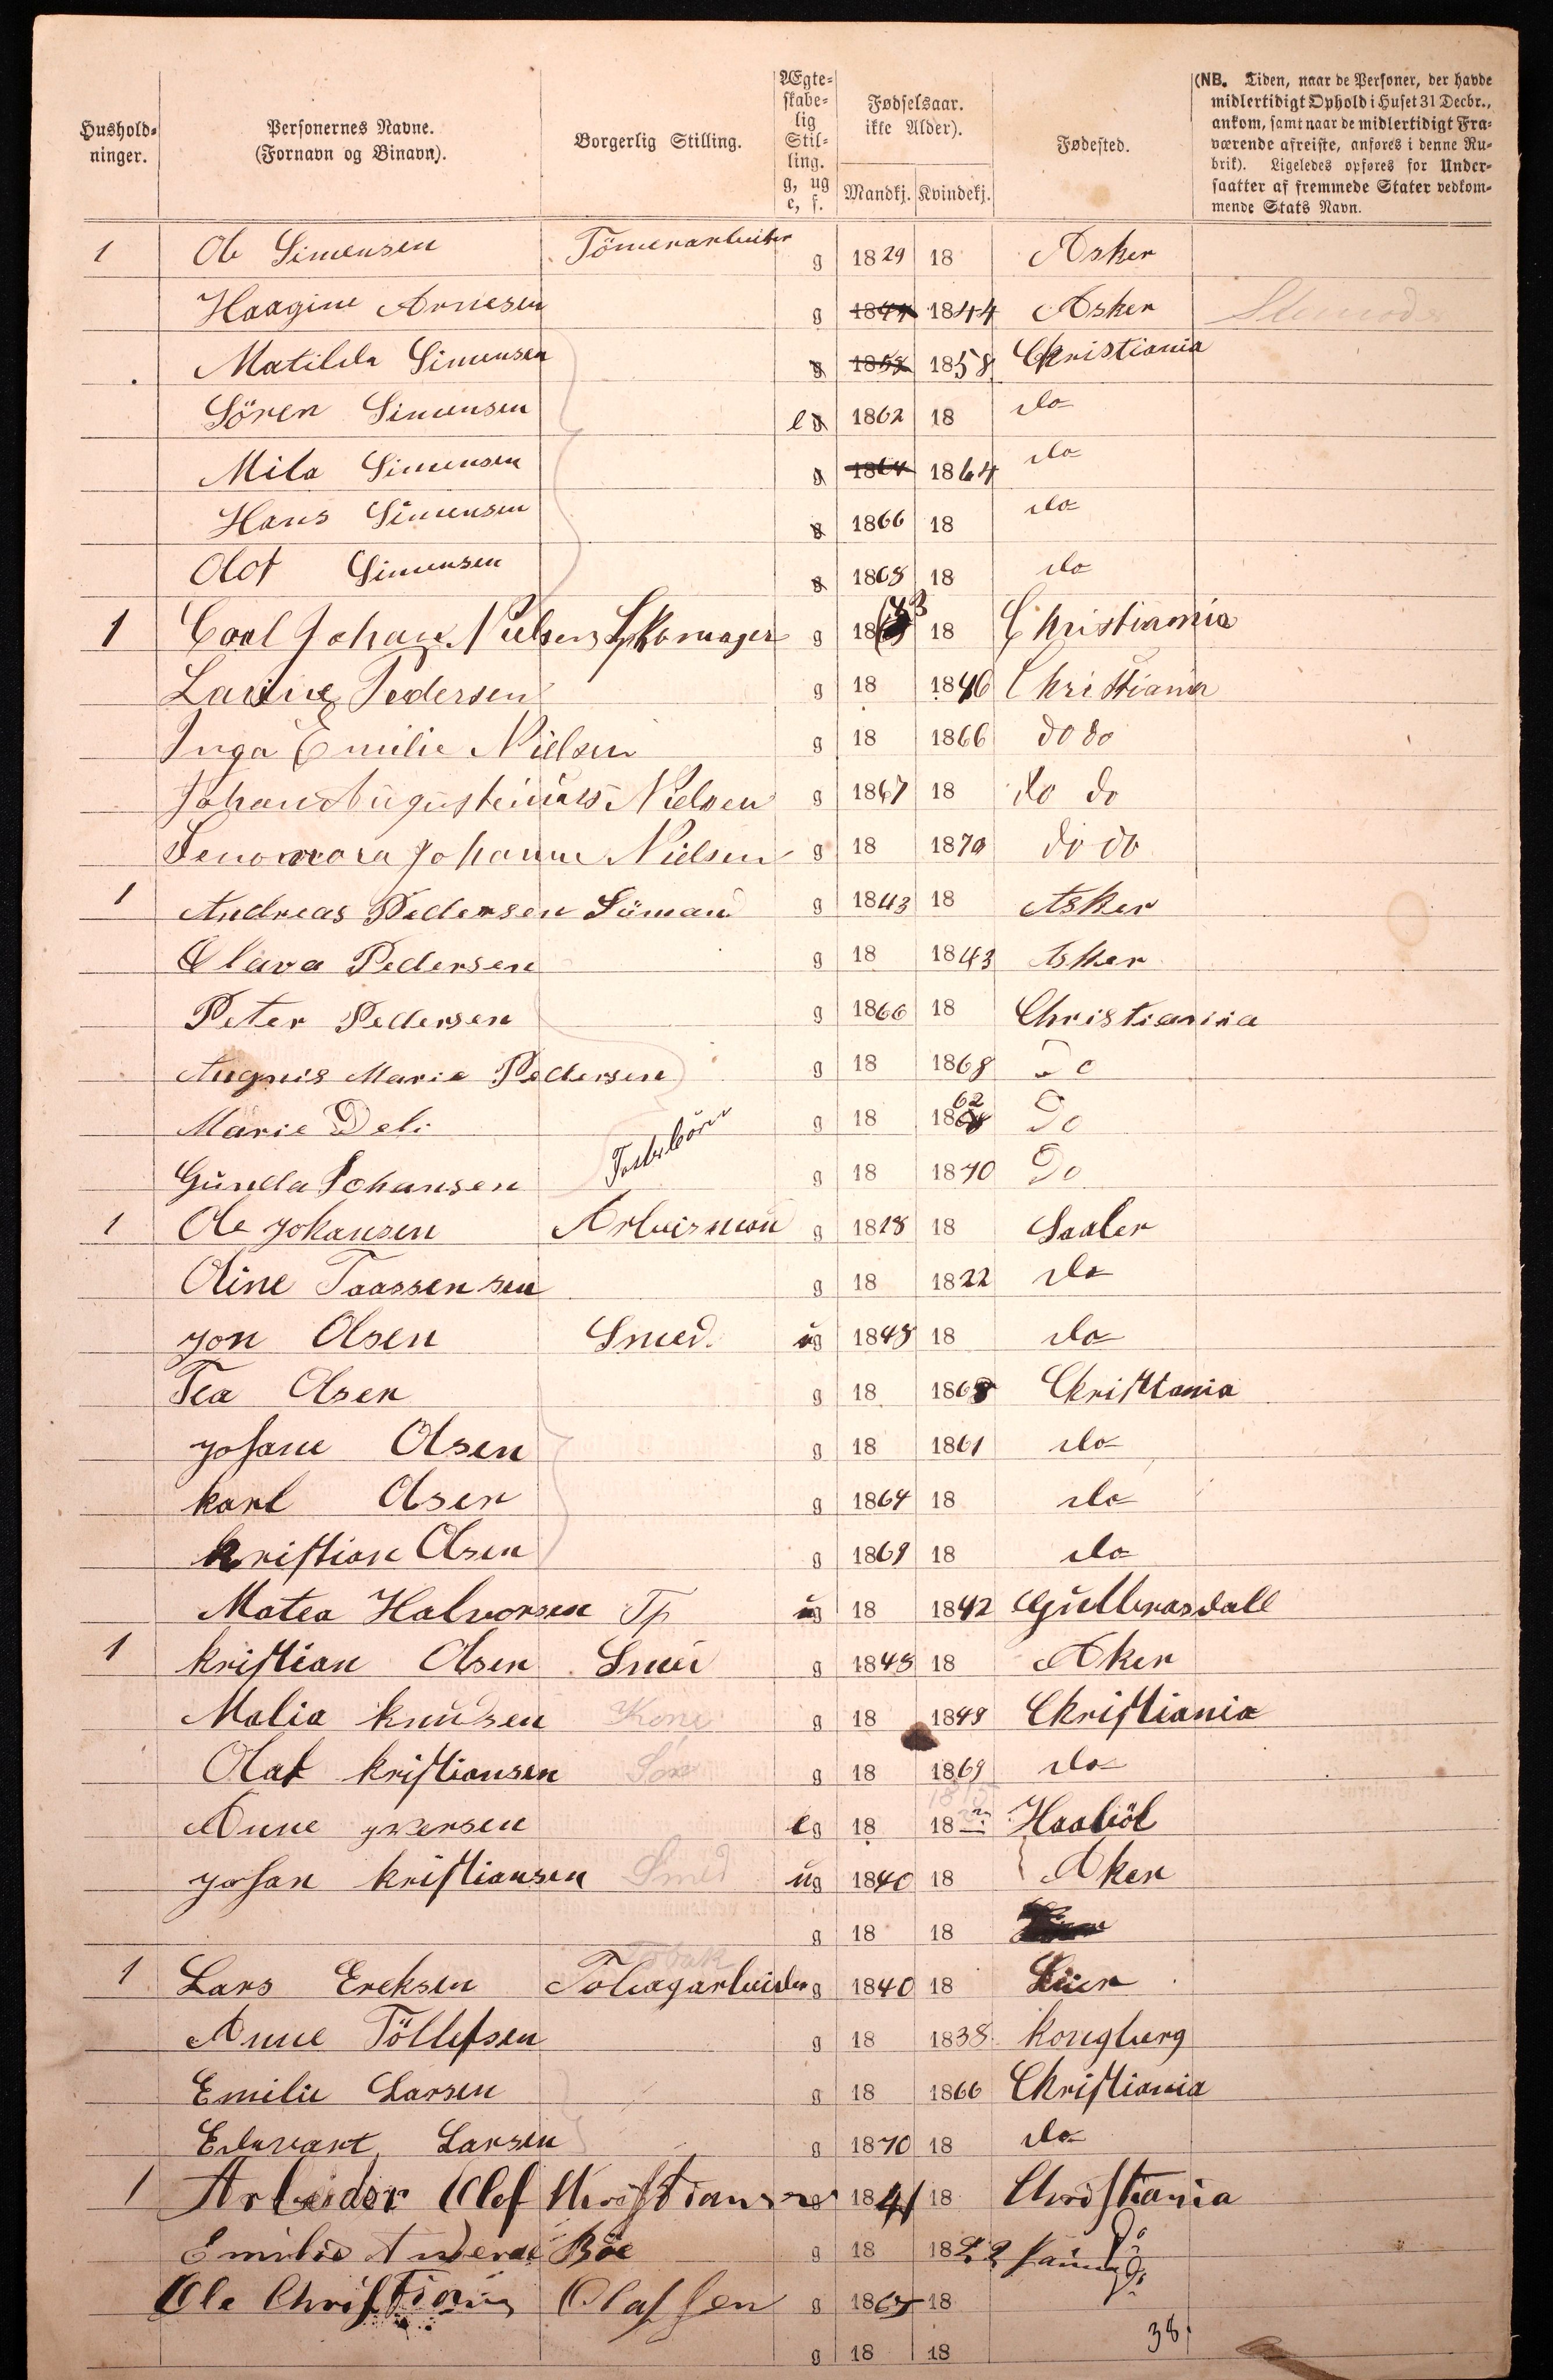 Hushold-
ninger.
Personernes Navne.
(Fornavn og Binavn).
Borgerlig Stilling.
Ægte-
skabe-
lig
Stil-
ling.
g, ug
e, f.
Fødselsaar.
ikke Alder).
Mandkj. Kvindekj.
Fødested.
(NB. Tiden, naar de Personer, der havde
midlertidigt Ophold i Huset 31 Decbr.,
ankom, samt naar de midlertidigt Fra-
værende afreiste, anføres i denne Ru-
brik). Ligeledes opføres for Under-
saatter af fremmede Stater vedkom-
mende Stats Navn.
1 Ole Simensen Tömerarbeider g 1829 18 Asker
Haagine Arnesen g 1844 1844 Asker
Matilda Simensen g 1858 1858 Christiania
Sören Simensen e g 1862 18 do
Mila Simensen g 1864 1864 do
Hans Simensen g 1866 18 do
Olof Simensen g 1868 18 do
1 Carl Johan Nielsen Skomager g 1843 18 Christiania
Lavine Pedersen g 18 1846 Christiania
Inga Emilie Nielsen g 18 1866 do do
Johan Augusteinius Nielsen g 1867 18 do do
Johanne Nielsen g 18 1870 do do
1 Andreas Pedersen Sömand g 1843 18 Asker
Clara Pedersen g 18 1843 Asker
Peter Pedersen g 1866 18 Christianina
Augnis Marie Pedersen g 18 1868 Do
Marie Deli g 18 1862 Do
Gunda Johansen g 18 1870 Do
1 Ole Johansen Arbeisman g 1818 18 Saaler
Oline Taassensen g 18 1822 do
Jon Olsen Smed. ug 1848 18 do
Tea Olsen g 18 1868 Christania
Johane Olsen g 18 1861 do
Karl Olsen g 1864 18 do
Kristian Olsen g 1869 18 do
Matea Halvorsen Tp ug 18 1842 Gulbrasdall
1 Kristian Olsen Smed g 1848 18 Aker
Malia Knudsen Kone g 18 1849 Christiania
Olaf Kristiansen Sön g 18 1869 do
Anne Iversen eg 18 18 Haaböl
Johan Kristiansen Smed ug 1840 18 Aker
g 18 18
Tobak
1 Lars Ereksen Tobagarbeider g 1840 18 Lier
Anne Töllefsen g 18 1838 Kongberg
Emilie Larsen g 18 1866 Christiania
Eduvart Larsen g 1870 18 do
1 Arbeider Olef Kristiansen g 1841 18 Christiania
Emilie Böe g 18 18
Ole Christian Olassen g 1865 18
38
g 18 18